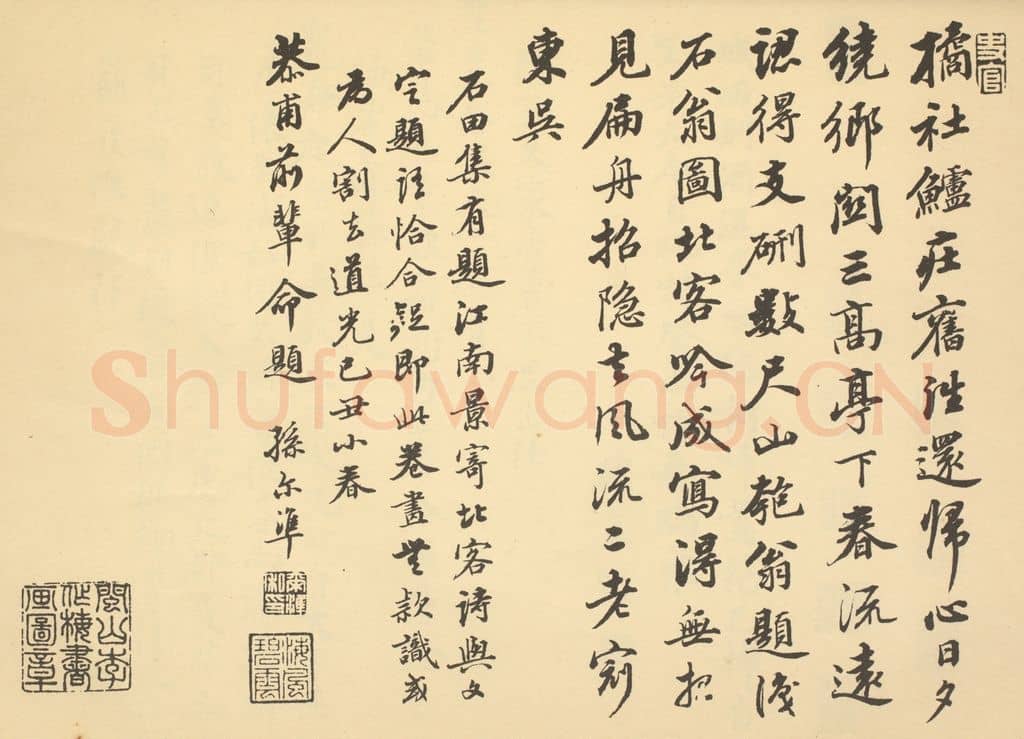 史官
橘社鱸庄舊往還帰心日夕
繞鄉関三高亭下春流遠
認得支硎數尺山匏翁題後
石翁圖北客吟成寫得無想
見扁舟招隱去風流二老冠
東吳
石田集有題江南景寄北客詩與文
定題語恰合疑即此卷畫無款識或
為人割去道光己丑小春
恭甫前輩命題 孫尔準
海風碧雲
閩山李書画圖章
Shufawang.CN